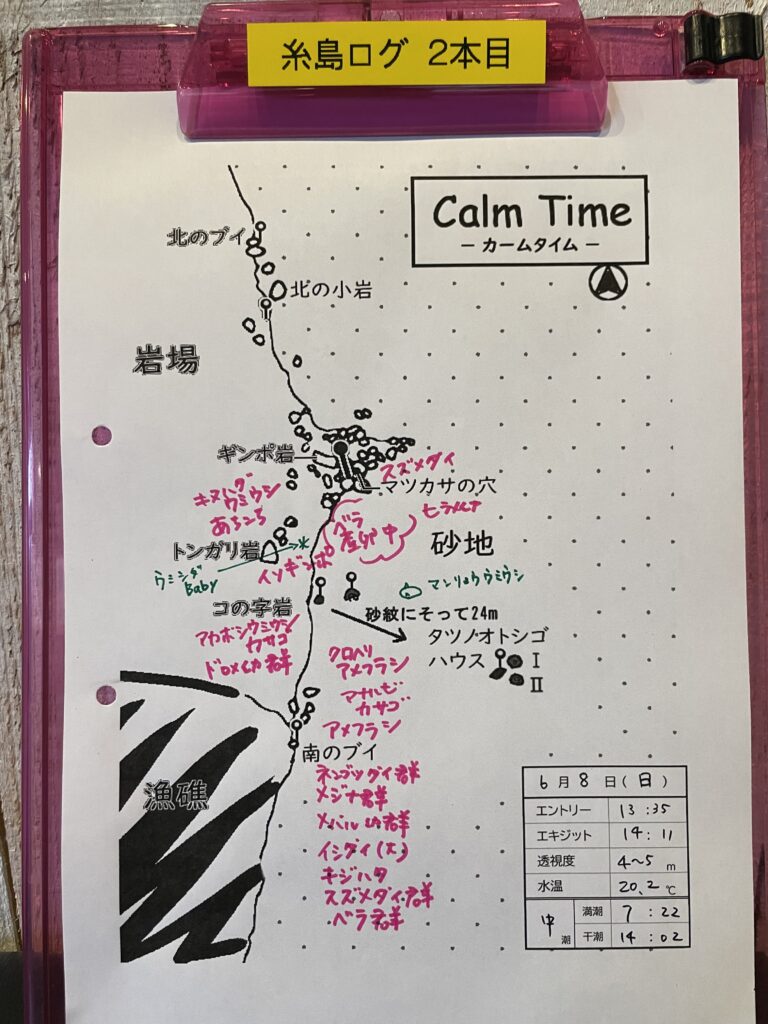 糸島ログ 2本目
Calm Time
－ カームタイム －
北のブイ
北の小岩
岩場
ギンポ岩
スズメダイ
マツカサの穴
キヌハダ
ウミウシ
あちこち
ベラ
産卵中
砂地
トンガリ岩
イソギンポ
ウミシダ
Baby
マンリョウウミウシ
コの字岩
砂紋にそって24m
タツノオトシゴ
ハウス
I
II
アカボシウミウシ
カサゴ
ドロメイカ群
クロヘリ
アメフラシ
マナルビ
カサゴ
アメフラシ
南のブイ
漁礁
ネンブツダイ群
メジナ群
メバル幼群
イシダイ(大)
キジハタ
スズメダイ群
ベラ群
6月8日(日)
エントリー 13:35
エキジット 14:11
透視度 4～5 m
水温 20.2 ℃
中潮 満潮 7:22
干潮 14:02